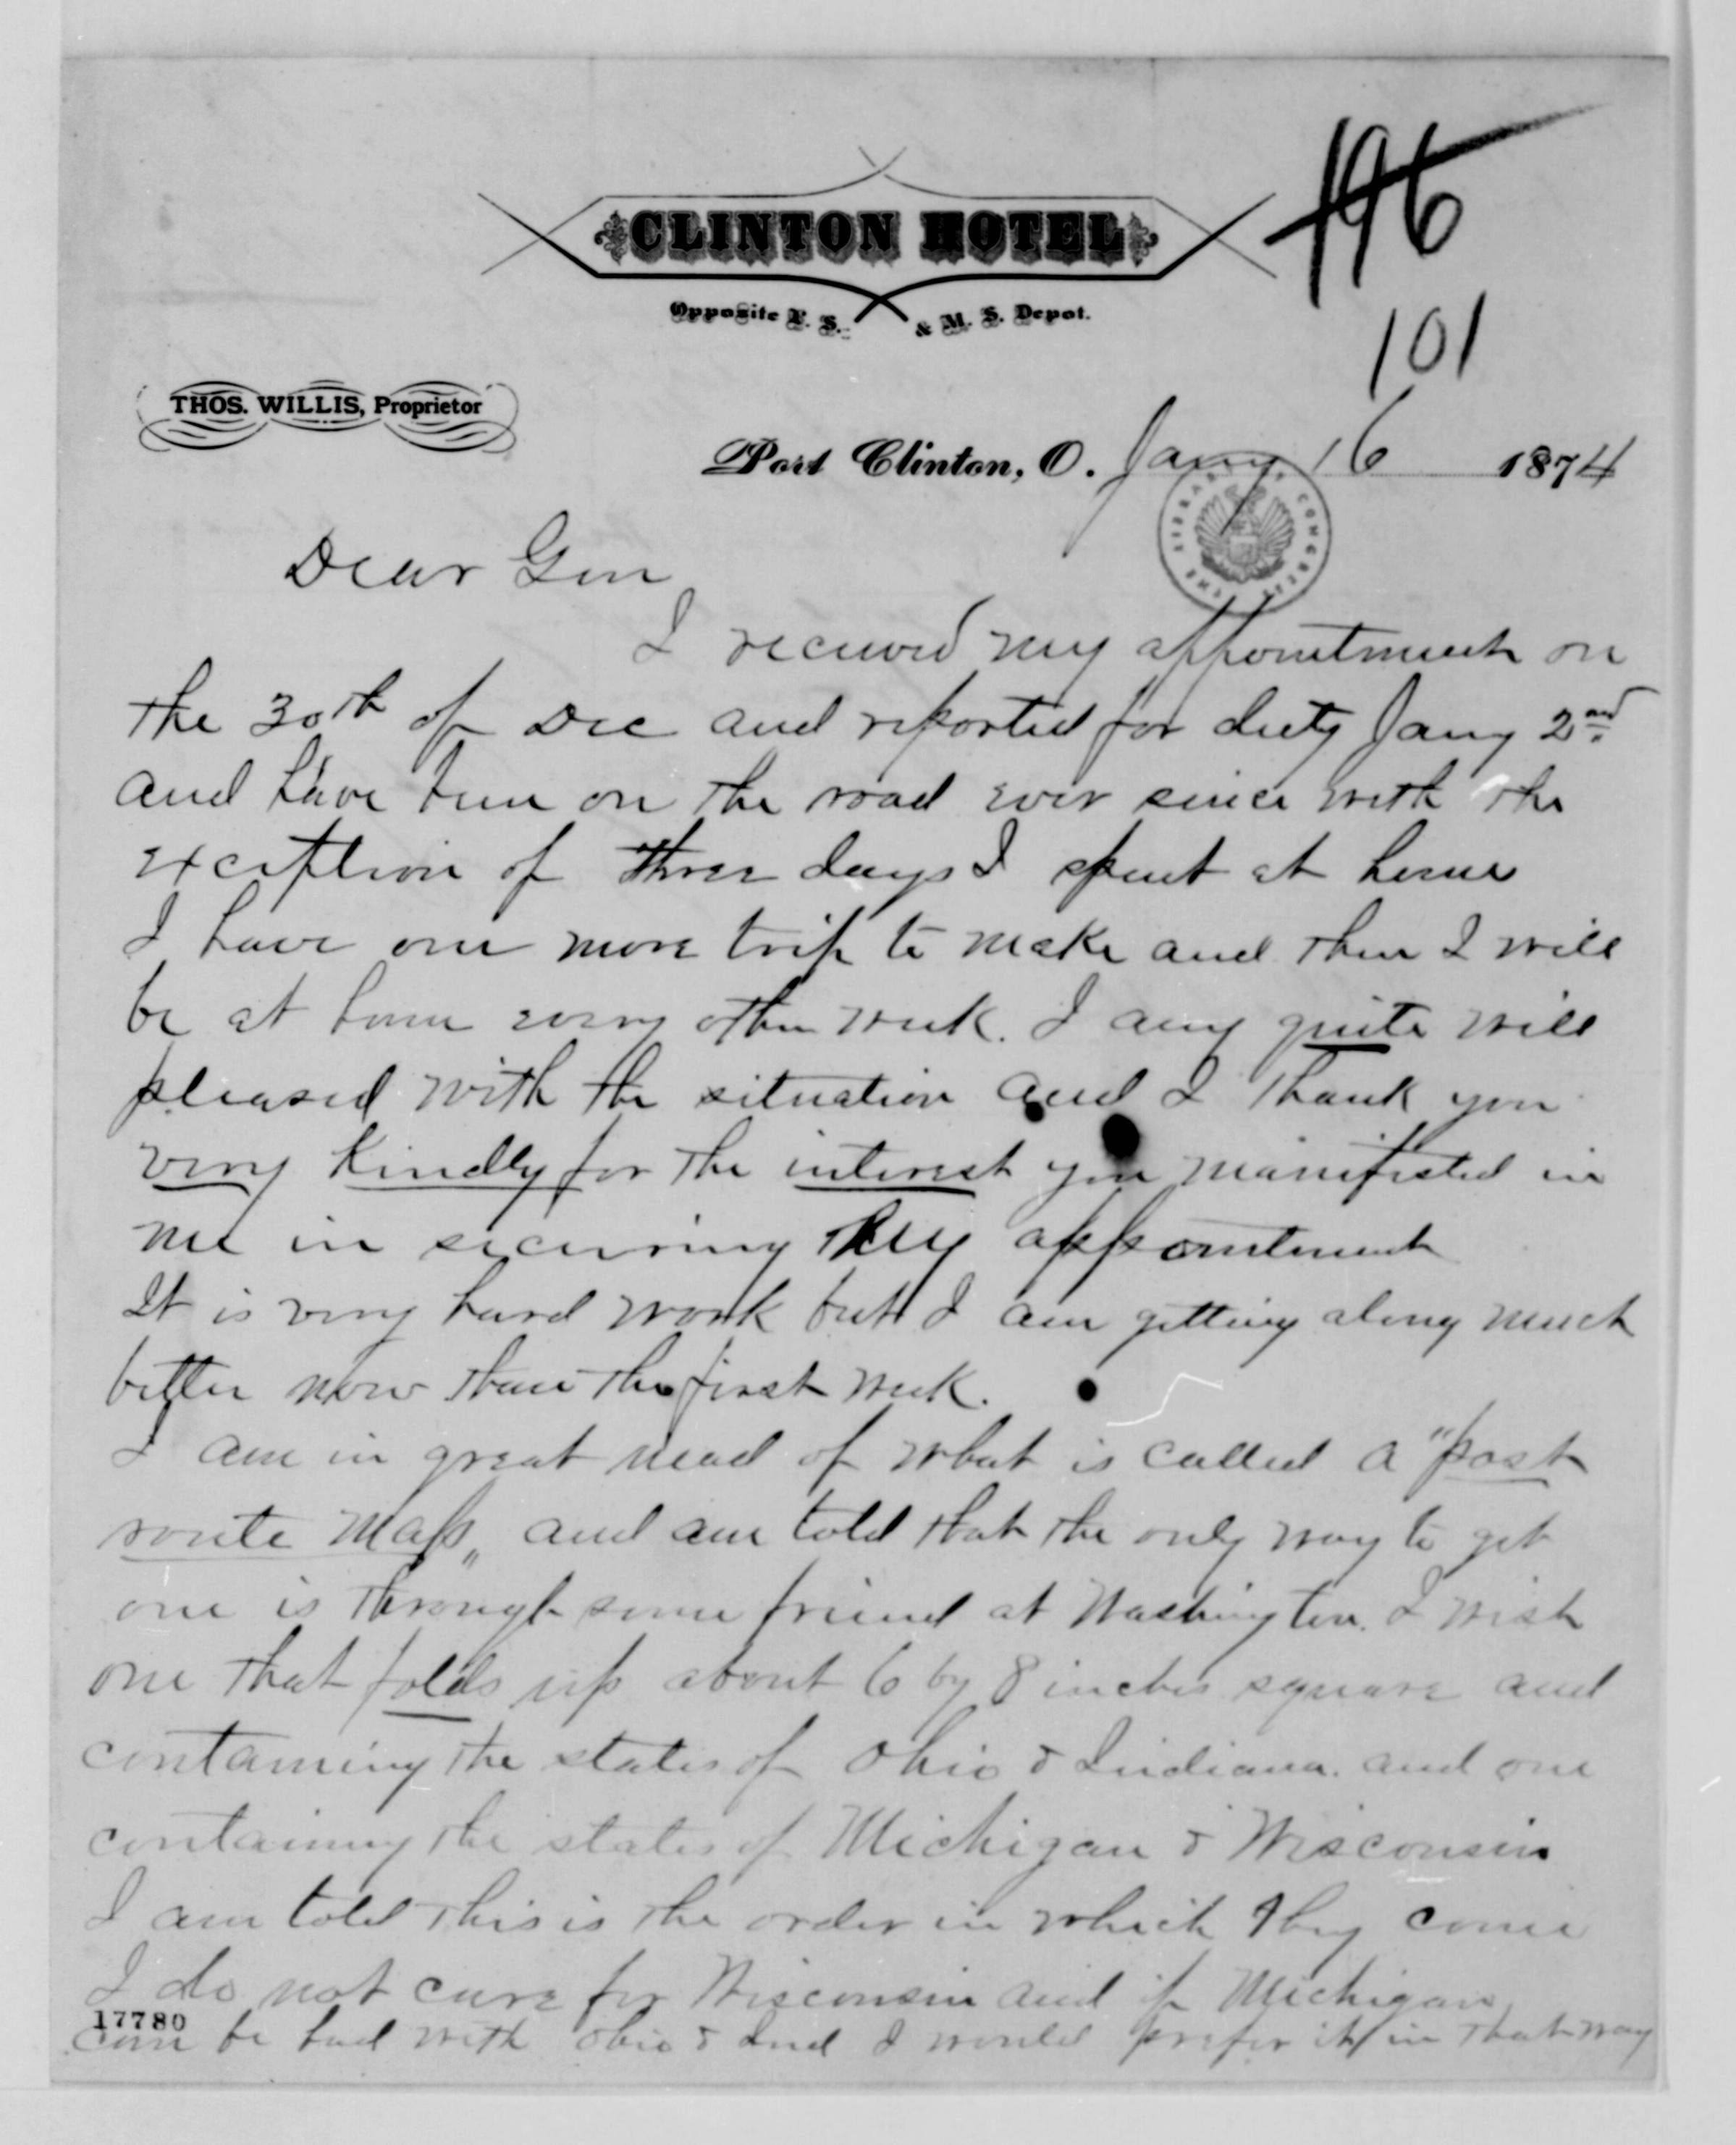 196
CLINTON HOTEL
Opposite L. S. & M. S. Depot.
101
THOS. WILLIS, Proprietor
Port Clinton, O. Jany 16 1874
THE LIBRARY OF CONGRESS
Dear Gen
I received my appointment on
the 30th of Dec and reported for duty Jany 2nd
and have been on the road ever since with the
exception of three days I spent at home
I have one more trip to make and then I will
be at home every other week. I am quite well
pleased with the situation and I thank you
very kindly for the interest you manifested in
me in securing my appointment
It is very hard work but I am getting along much
better now than the first week.
I am in great need of what is called a "post
route map" and am told that the only way to get
one is through some friend at Washington. I wish
one that folds up about 6 by 8 inches square and
containing the states of Ohio & Indiana. and one
containing the states of Michigan & Wisconsin
I am told this is the order in which they come
I do not care for Wisconsin and if Michigan
can be had with Ohio & Ind I would prefer it in that way
17780